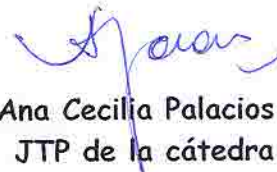 Ana Cecilia Palacios
JTP de la cátedra